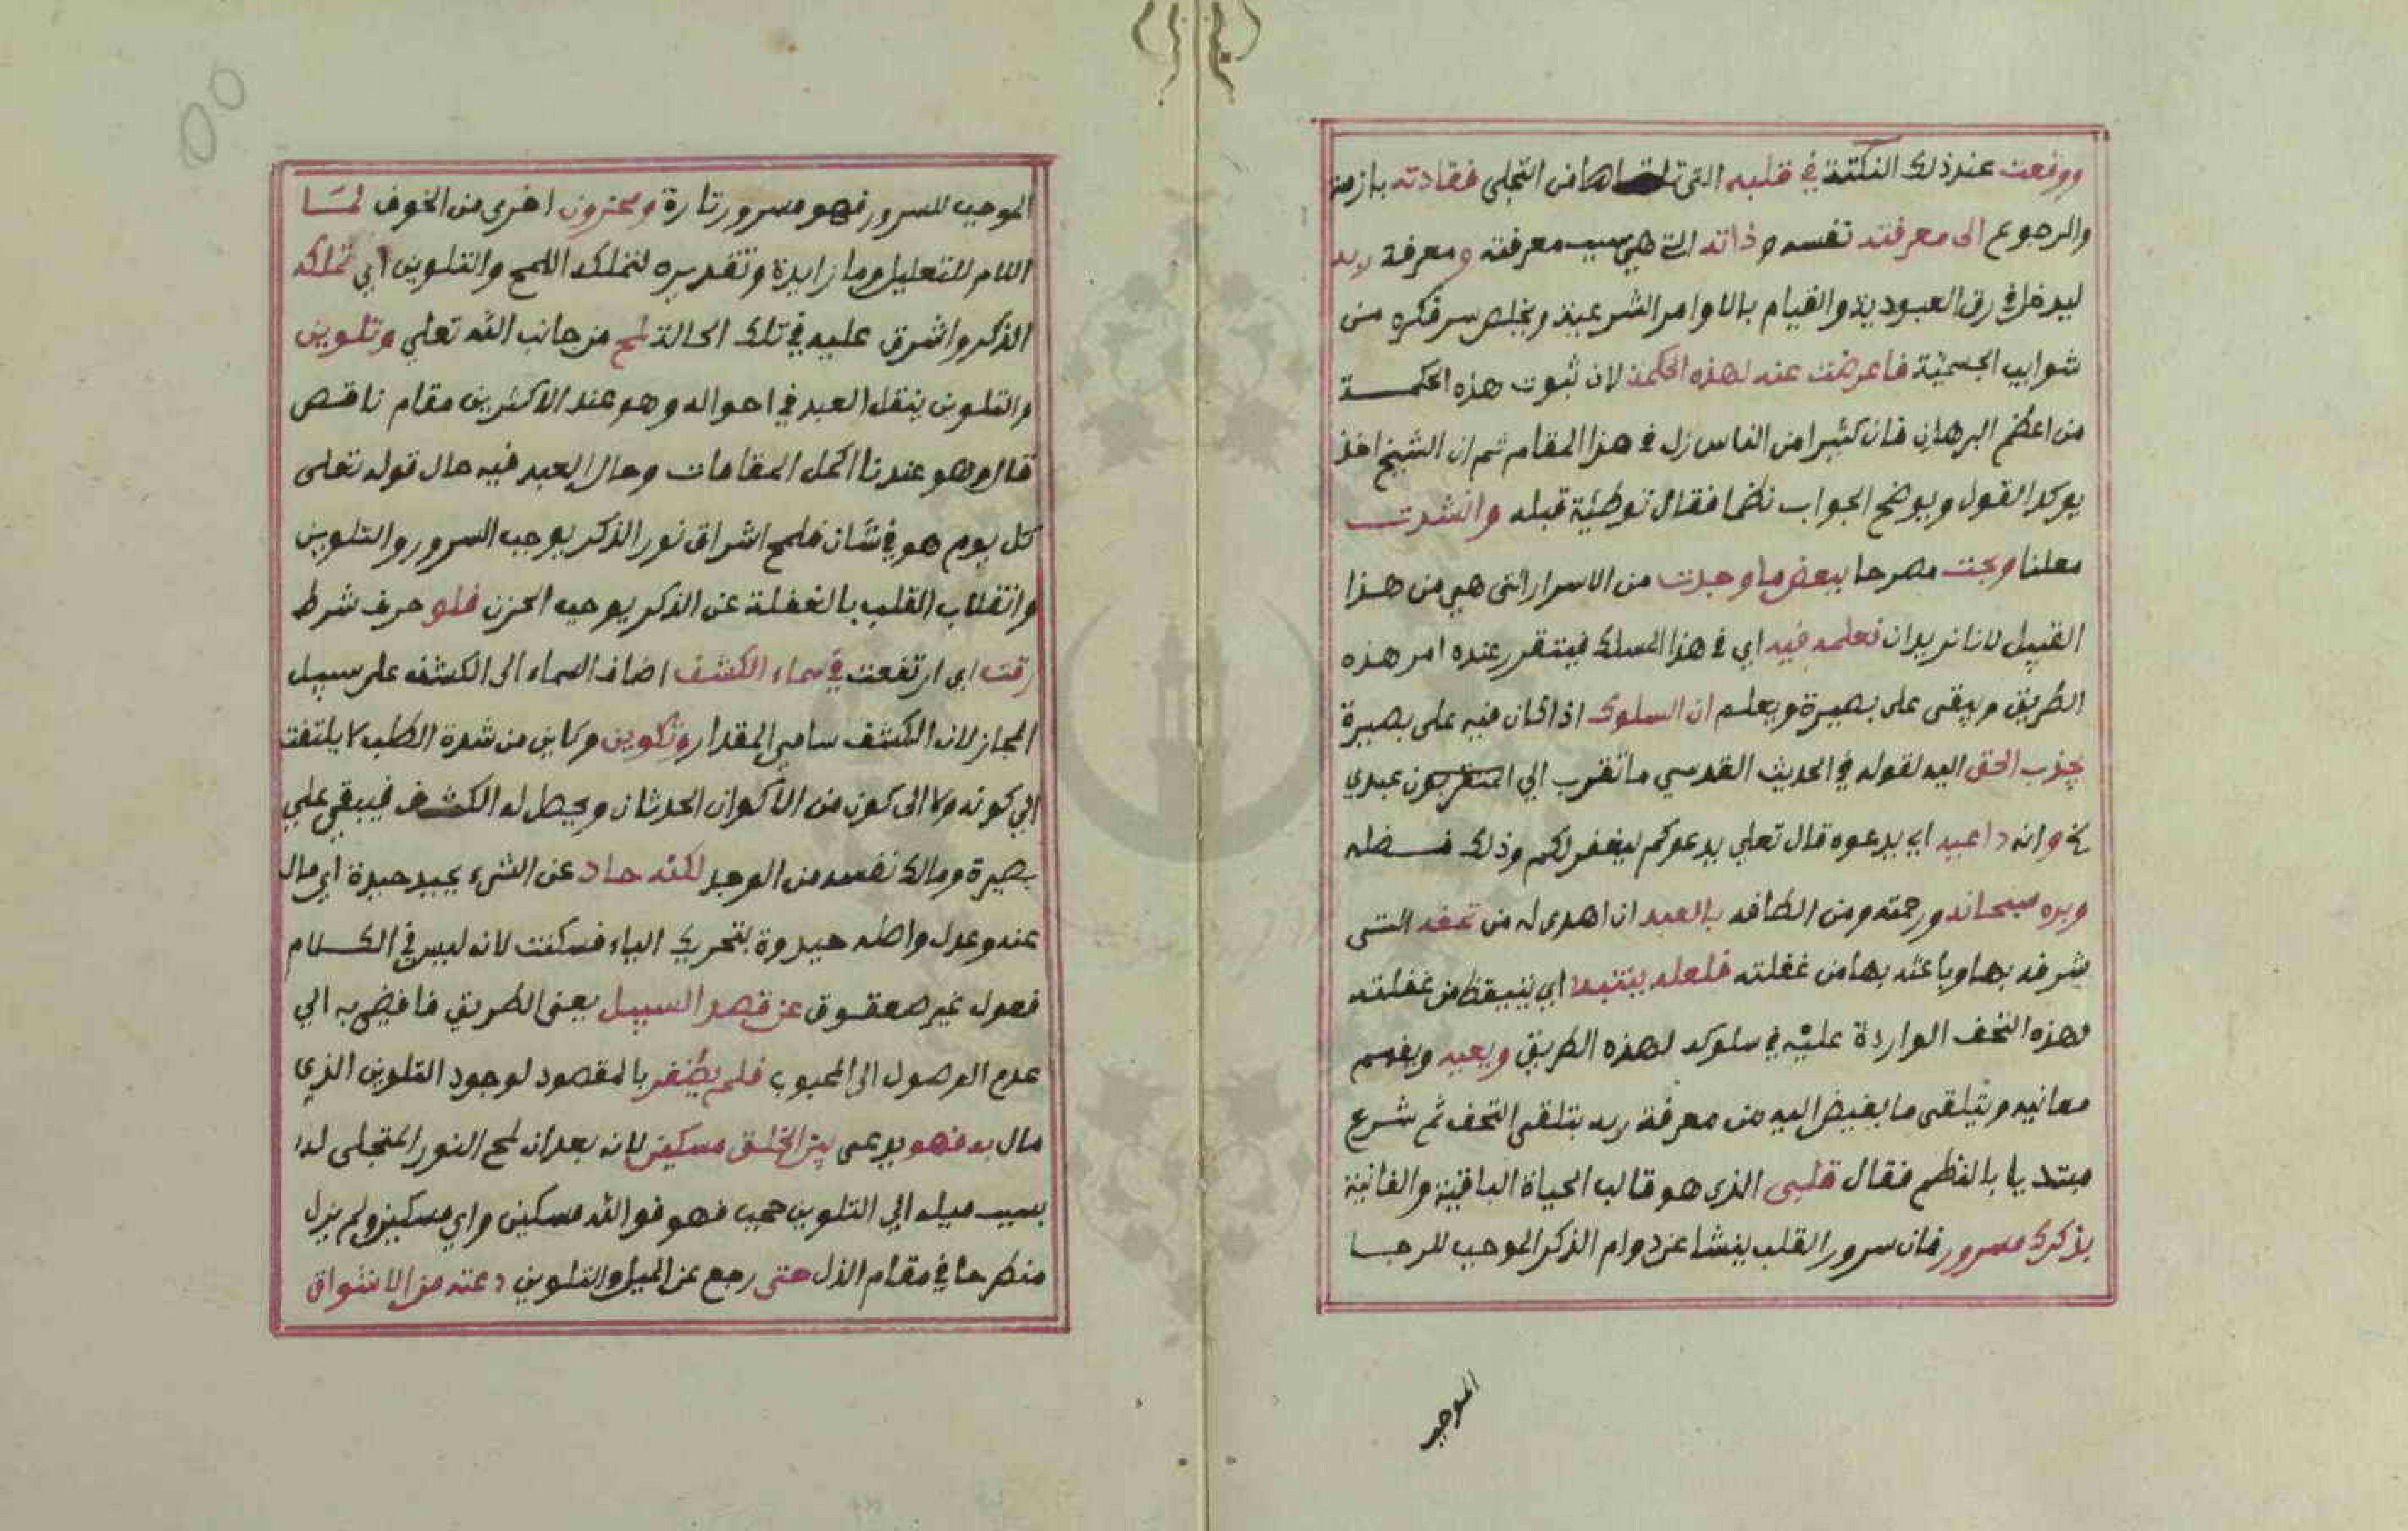 ووقعت عند ذلك النكتة في قلبه التي تلقاها من التجلي فقادته بازمة
والرجوع الى معرفته نفسه وذاته التي هي سبب معرفته ومعرفة ربه
ليدخل في رق العبودية والقيام بالاوامر الشرعية ويخلص سر فكره من
شوايب الجسمية فاعرضت عنه لهذه الحكمة لان ثبوت هذه الحكمة
من اعظم البرهان فان كثيرا من الناس زل في هذا المقام ثم ان الشيخ اخذ
يوكد القول ويوضح الجواب نظما فقال توطئة قبله وانشدت
معلنا وبحت مصرحا ببعض ما وجدت من الاسرار التي هي من هذا
القبيل لاننا نريد ان نعلمه فيه اي في هذا المسلك فيتقرر عنده امر هذه
الطريق ويبقى على بصيرة ويعلم ان السلوك اذا كان فيه على بصيرة
يجذب الحق اليه لقوله في الحديث القدسي ما تقرب الي المتقربون عبدي
وانه داعيه اي يدعوه قال تعلى يدعوكم ليغفر لكم وذلك فضله
وبره سبحانه ورحمته ومن الطافه بالعبد ان اهدى له من تحفه التي
شرفه بها وباعثه بها من غفلته فلعله ينتبه اي يتيقظ من غفلته
لهذه التحف الواردة عليه في سلوكه لهذه الطريق ويعيه ويفهم
معانيه ويتلقى ما يفيض اليه من معرفة ربه بتلقي التحف ثم شرع
مبتديا بالنظم فقال قلبي الذي هو قالب الحياة الباقية والفانية
بذكرك مسرور فان سرور القلب ينشا عن دوام الذكر الموجب للرجا
الموجب
الموجب للسرور فهو مسرور تارة ومحزون اخرى من الخوف لما
اللام للتعليل وما زايدة وتقديره لتملكه اللمح والتلوين اي تملكه
الذكر واشرق عليه في تلك الحالة لمح من جانب الله تعلى وتلوين
والتلوين ينقل العبد في احواله وهو عند الاكثرين مقام ناقص
قال وهو عندنا اكمل المقامات وحال العبد فيه حال قوله تعلى
كل يوم هو في شان فلمح اشراق نور الذكر يوجب السرور والتلوين
وانقلاب القلب بالغفلة عن الذكر يوجب الحزن فلو حرف شرط
رقت اي ارتفعت في سماء الكشف اضاف السماء الى الكشف على سبيل
المجاز لان الكشف سامي المقدار وتكوين وكاين من شدة الطلب لا يلتفت
الي كونه ولا الى كون من الاكوان الحدثان ويحصل له الكشف فيبقى على
بصيرة ومالك نفسه من الوجد لكنه حاد عن الشيء يحيد حيدة اي مال
عنه وعدل واصله حيدوة بتحريك الياء فسكنت لانه ليس في الكلام
فعول غير صعفوق عن قصد السبيل يعني الطريق فافيض به الي
عدم الوصول الى المحبوب فلم يظفر بالمقصود لوجود التلوين الذي
مال به فهو يدعى بين الخلق مسكين لانه بعد ان لمح النور المتجلى له
بسبب ميله الي التلوين حجب فهو فوالله مسكين واي مسكين ولم يزل
منطرحا في مقام الذل حتى رجع عن الميل والتلوين دعته من الاشواق